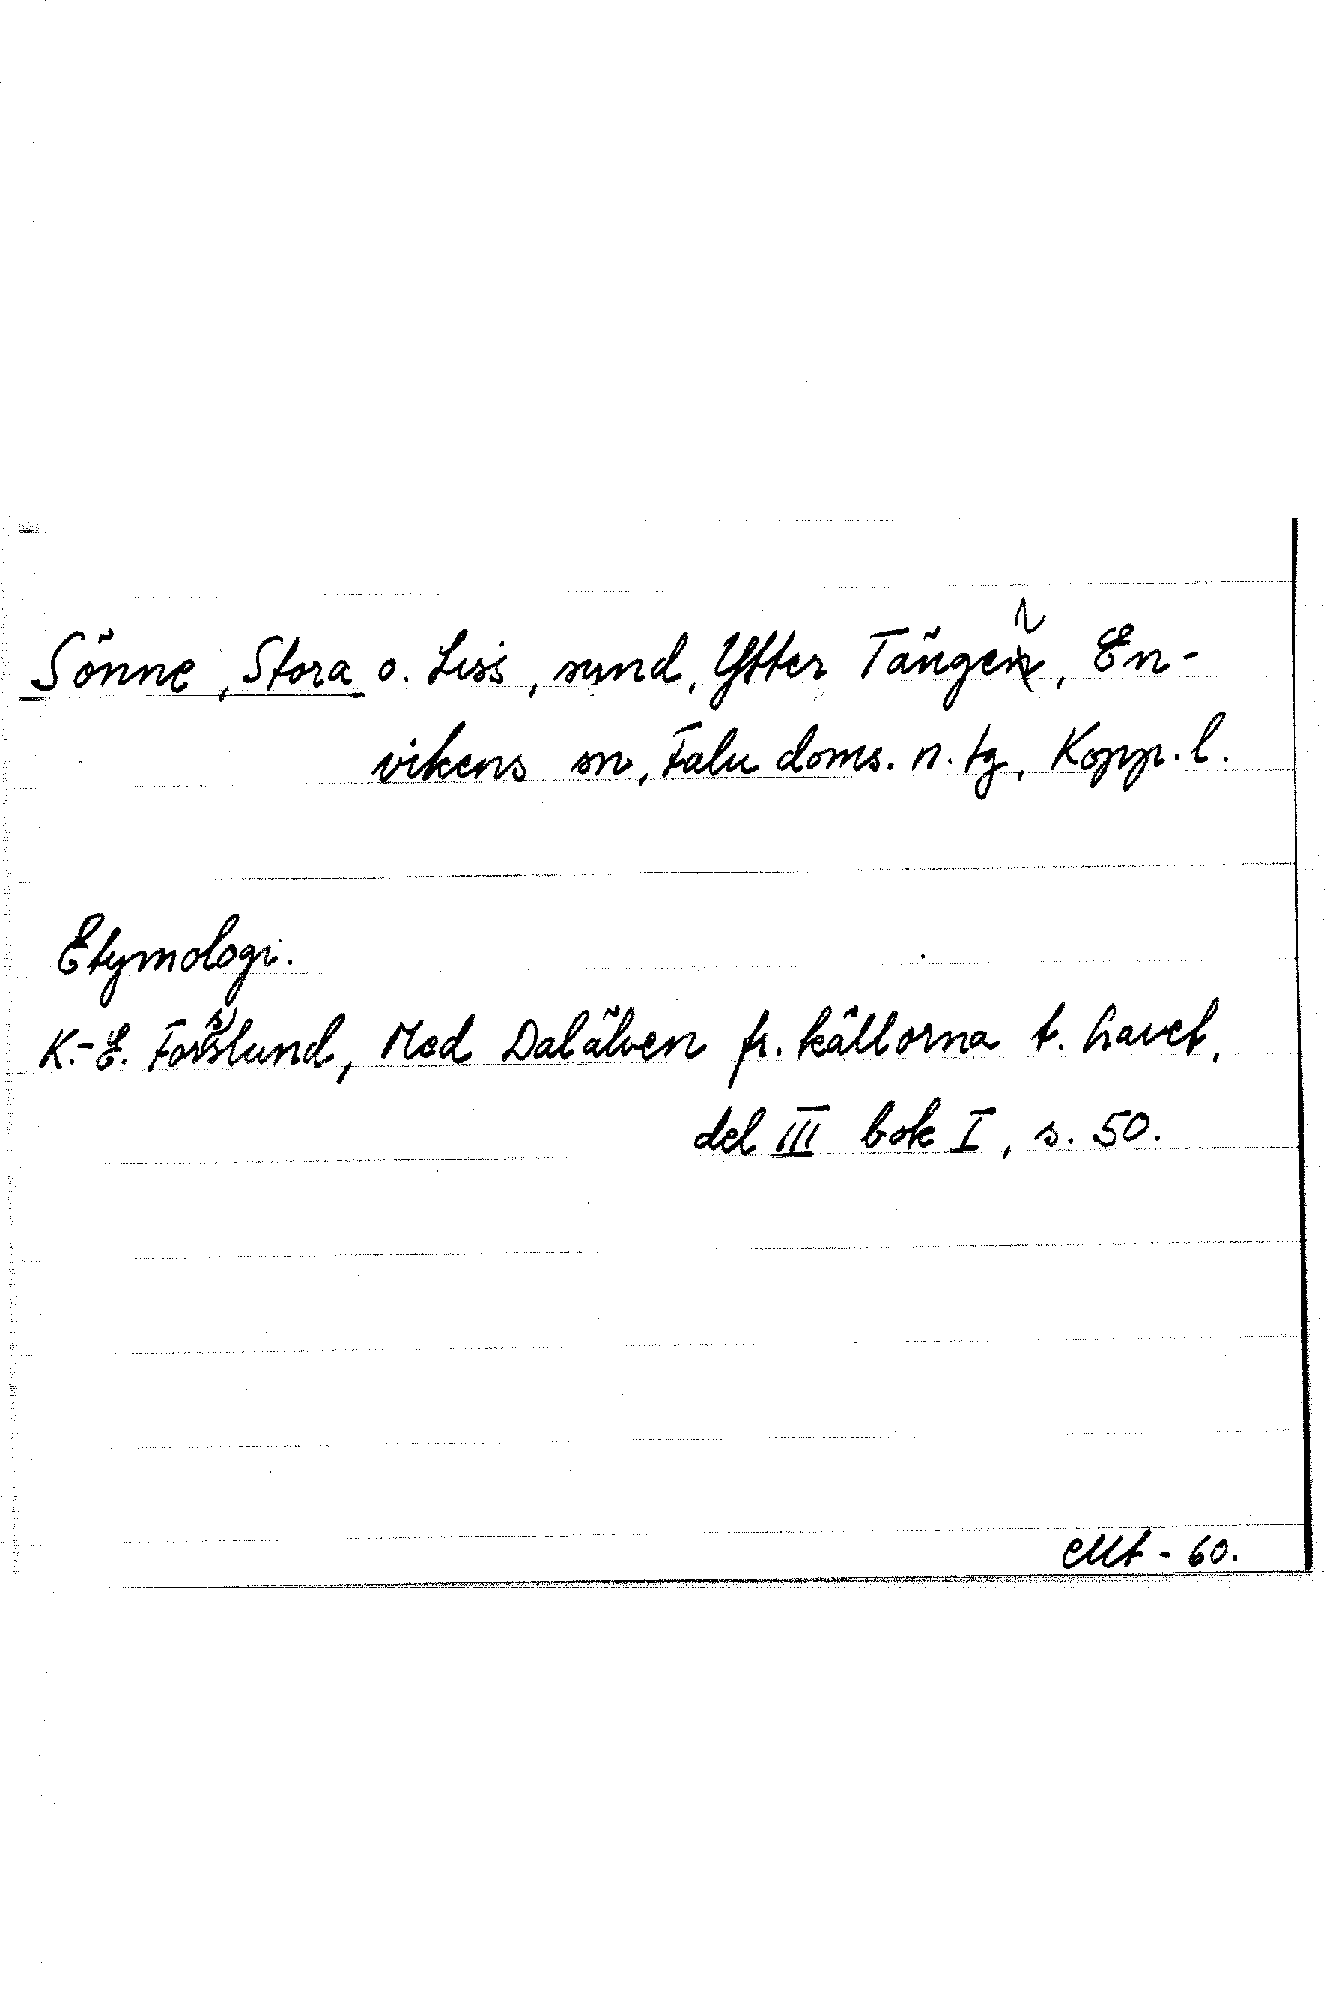 Sönne, Stora o. Liss, sund, Ytter Tänger, En-
vikens sn, Falu doms. n. tg, Kopp. l.
Etymologi.
K.-E. Forslund, Med Dalälven fr. källorna t. havet,
del III bok I, s. 50.